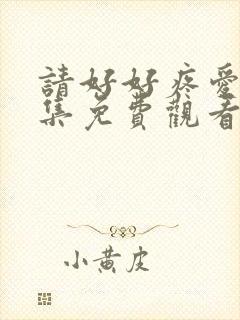 請好好疼愛
集免費觀看
小黃皮